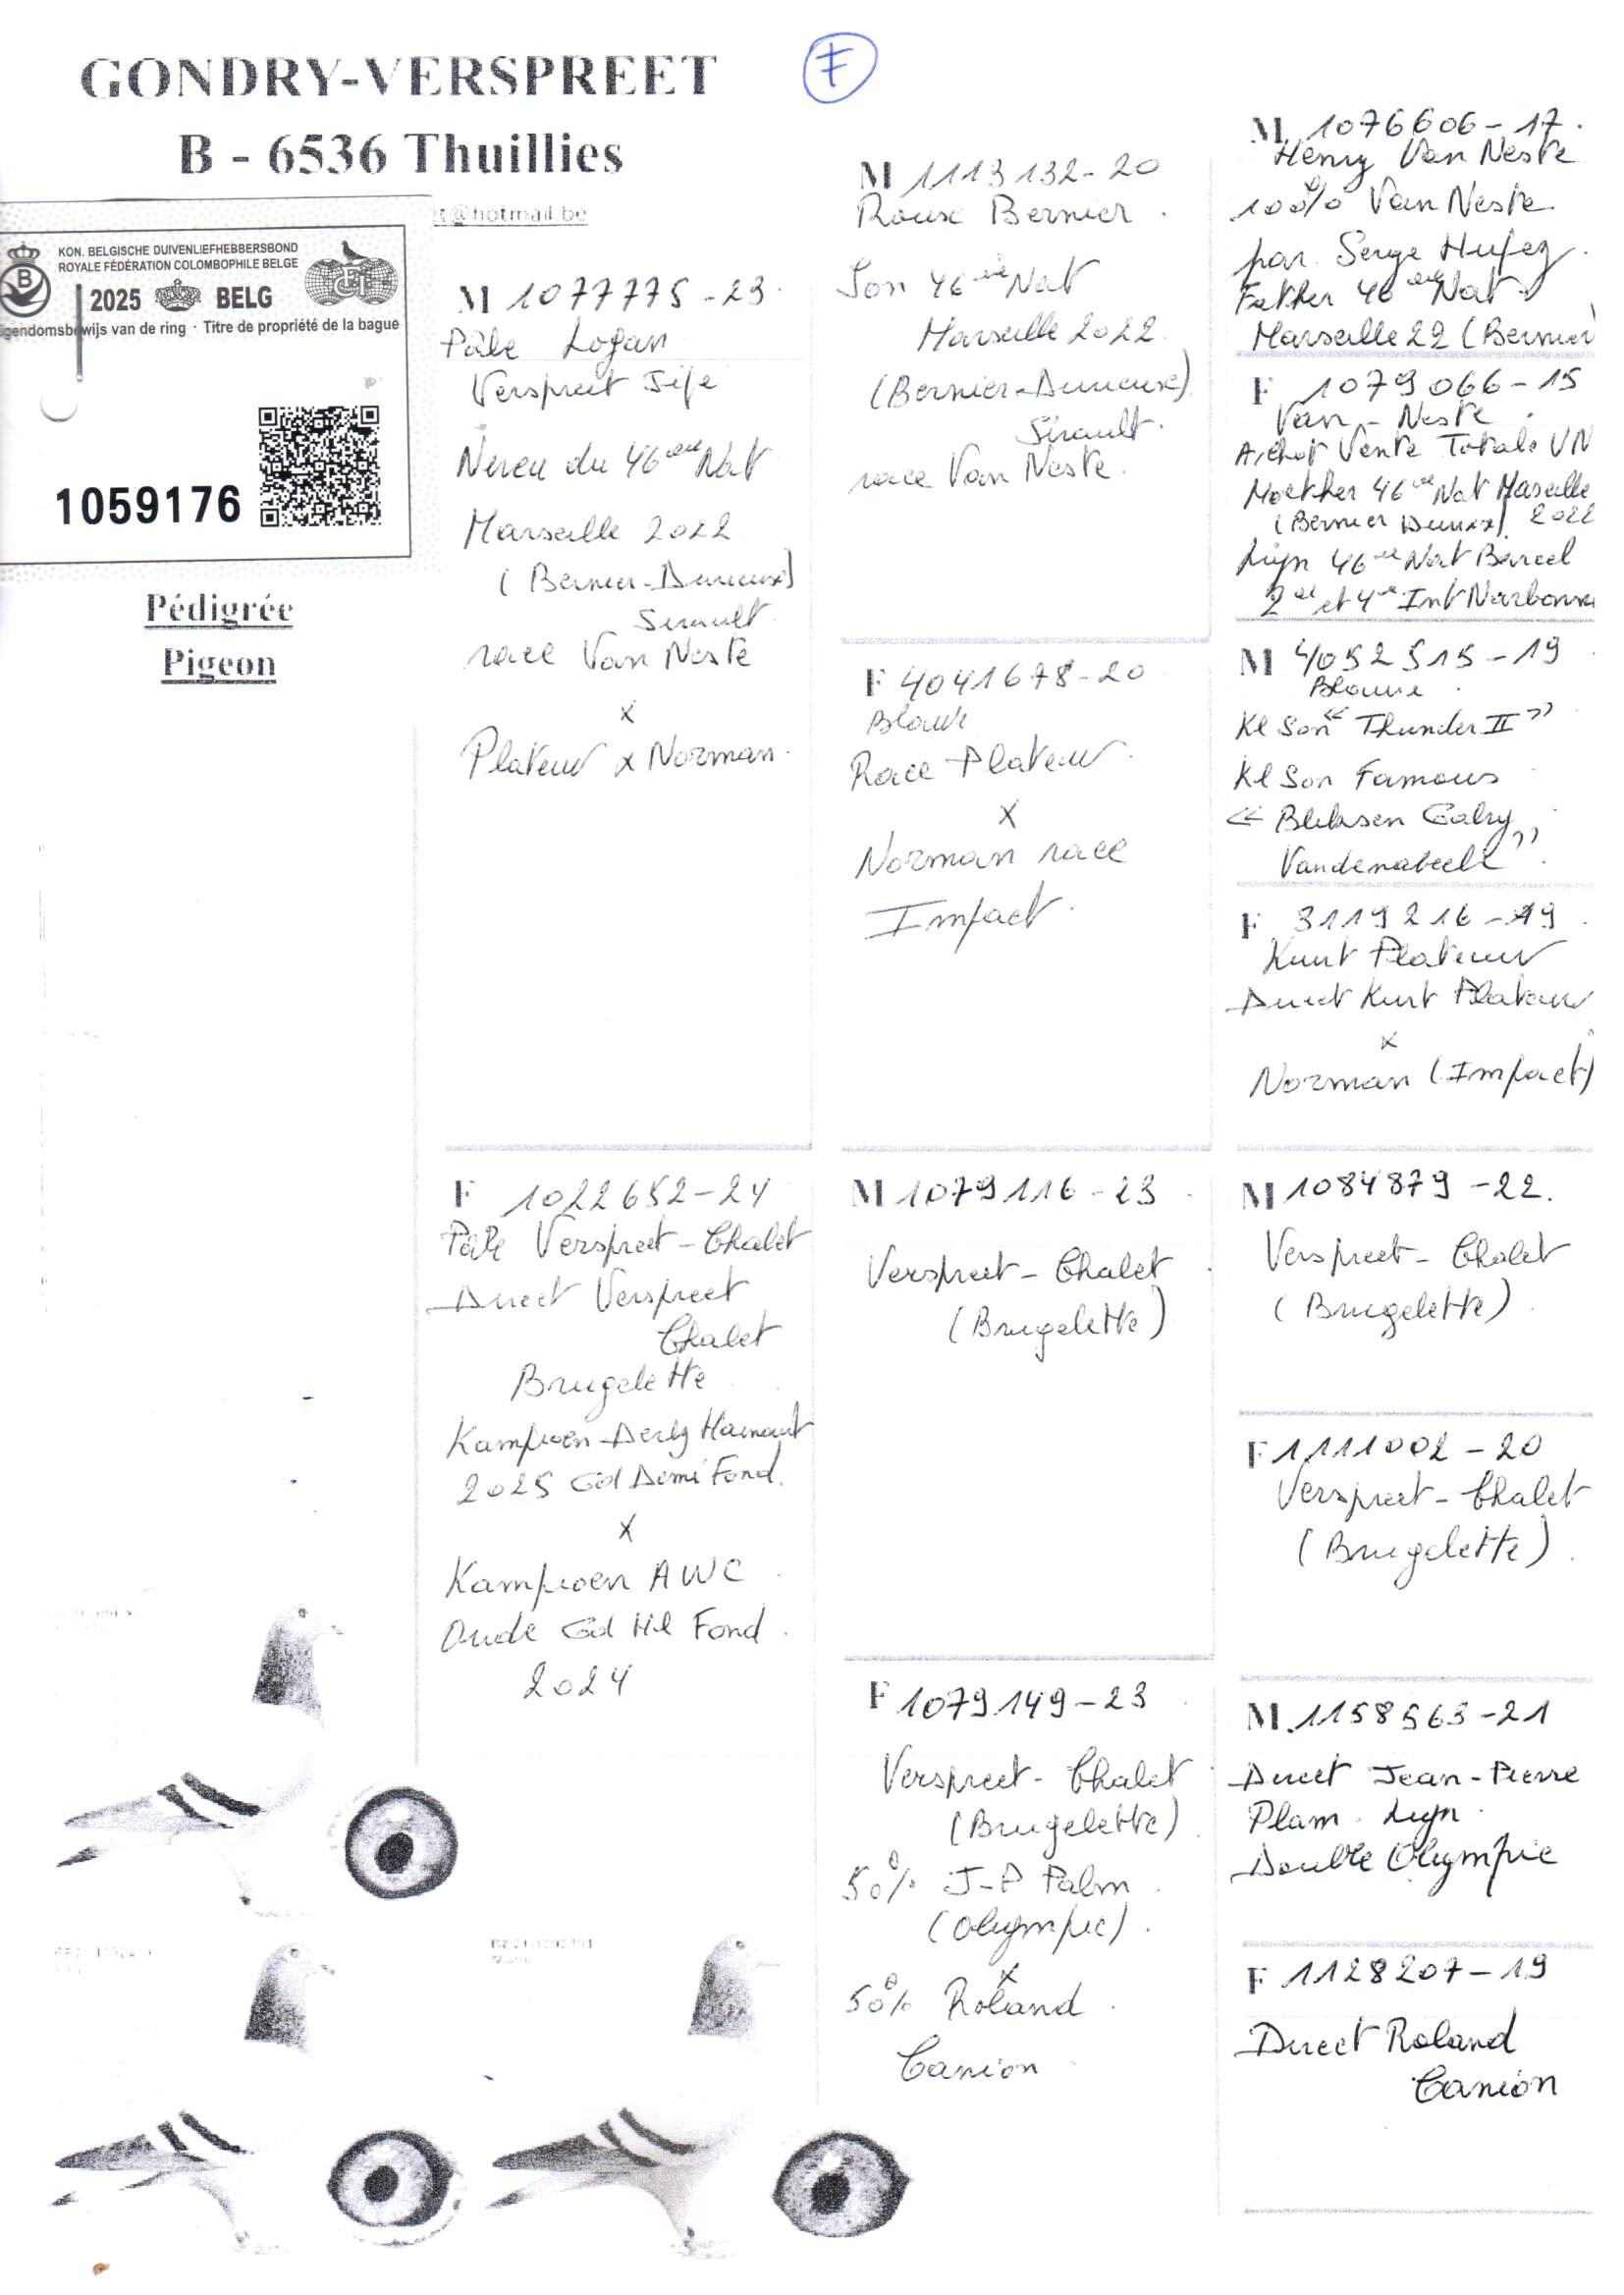 GONDRY-VERSPREET
B - 6536 Thuillies
t@hotmail.be
F
KON. BELGISCHE DUIVENLIEFHEBBERSBOND
ROYALE FÉDÉRATION COLOMBOPHILE BELGE
2025 BELG
igendomsbewijs van de ring · Titre de propriété de la bague
1059176
Pédigrée
Pigeon
M 1077775-23
Pâle Logan
Verspreet Jife
Neveu du 46ème Nat
Marseille 2022
(Bernier-Dumeux)
Sirault
race Van Neste
x
Plateur x Norman
F 1022652-24
Pâle Verspreet-Chalet
Direct Verspreet
Chalet
Brugelette
Kampioen Derby Hainaut
2025 Gd Demi Fond
x
Kampioen AWC
Oude Gd Hl Fond
2024
M 1113132-20
Rouse Bernier
Son 46ème Nat
Marseille 2022
(Bernier-Dumeux)
Sirault.
race Van Neste.
F 4041678-20
Blauw
Race Plateur
x
Norman race
Impact.
M 1079116-23
Verspreet-Chalet
(Brugelette)
F 1079149-23
Verspreet-Chalet
(Brugelette)
50% J-P Palm
(Olympic)
x
50% Roland
Canion
M 1076606-17
Henry Van Neste
100% Van Neste
par Serge Hufez
Father 46ème Nat
Marseille 22 (Bernier
F 1079066-15
Van-Neste
Achat Vente Totale VN
Moether 46ème Nat Marseille
(Bernier Dumeux) 2022
Lijn 46ème Nat Barcel
2de et 4de Int Narbonne
M 4052515-19
Blauwe
Kl Son "Thunder II"
Kl Son Famous
"Bliksen Gaby
Vandenabeele"
F 3119216-19
Kurt Plateuw
Direct Kurt Plateuw
x
Norman (Impact)
M 1084879-22.
Verspreet-Chalet
(Brugelette)
F 1111002-20
Verspreet-Chalet
(Brugelette)
M 1158563-21
Direct Jean-Pierre
Plam Lijn
Double Olympic
F 1128207-19
Direct Roland
Canion